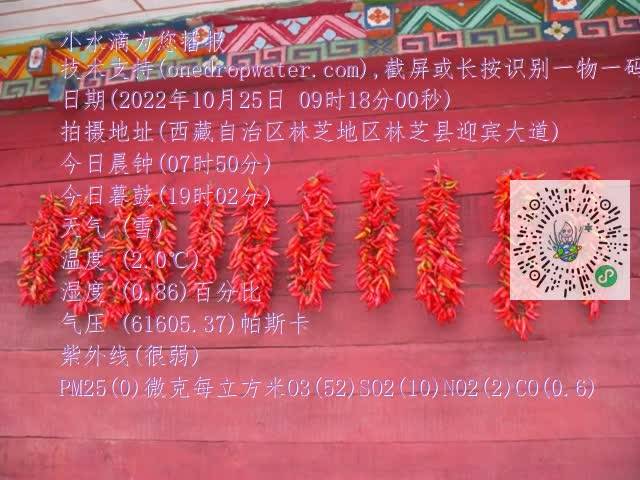 小水滴为您播报
技术支持(onedropwater.com),截屏或长按识别一物一码
日期(2022年10月25日 09时18分00秒)
拍摄地址(西藏自治区林芝地区林芝县迎宾大道)
今日晨钟(07时50分)
今日暮鼓(19时02分)
天气 (雪)
温度 (2.0℃)
湿度 (0.86)百分比
气压 (61605.37)帕斯卡
紫外线(很弱)
PM25(0)微克每立方米O3(52)SO2(10)NO2(2)CO(0.6)